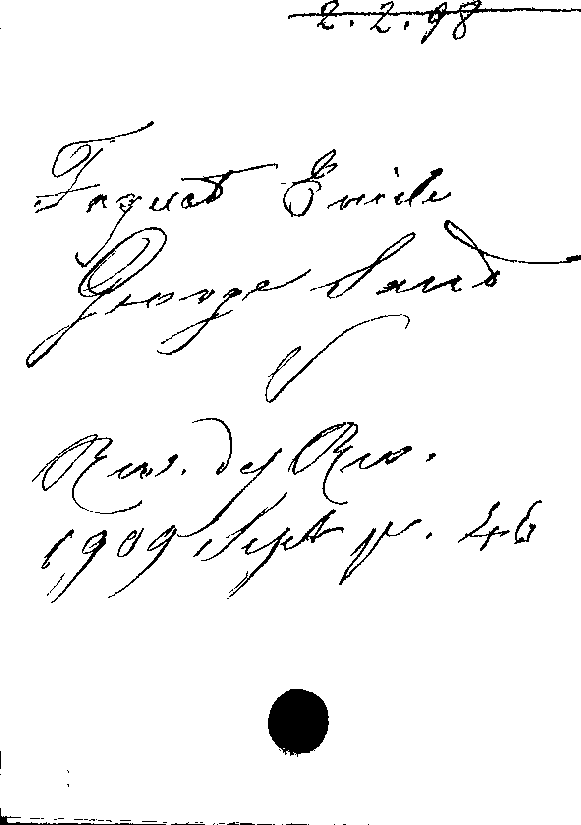 2.2.98
Faguet Emile
George Sand
Rev. des Rev.
1909 Sept p. 46